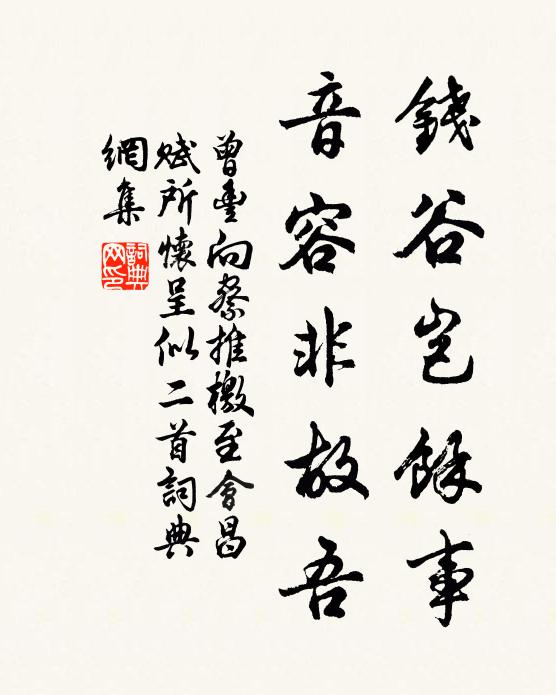 錢谷豈餘事
音容非故吾
曾豐向察推檄至會昌
賦所懷呈似二首詞典
網集
詞典
網印